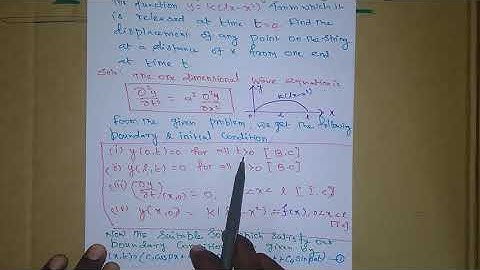 the function y = k(lx-x²) from which it
is released at time t=0. Find the
displacement of any point on the string
at a distance of x from one end
at time t
Soln: The one dimensional wave equation is
∂²y/∂t² = a² ∂²y/∂x²
y k(lx-x²) l x
From the given problem, we get the following
boundary & initial condition
(i) y(0,t)=0 for all t>0 [B.C]
(ii) y(l,t)=0 for all t>0 [B.C]
(iii) (∂y/∂t)(x,0) = 0, 0<x<l [I.C]
(iv) y(x,0) = k(lx-x²) = f(x), 0<x<l
Now the suitable soln which satisfy our
boundary condition is given by